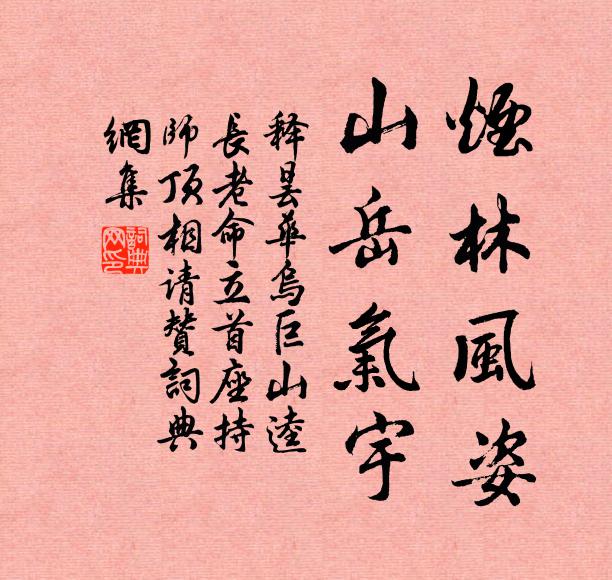 煙林風姿
山岳氣宇
释曇華烏巨山逵
長老命立首座持
師頂相请赞詞典
網集
詞典網印